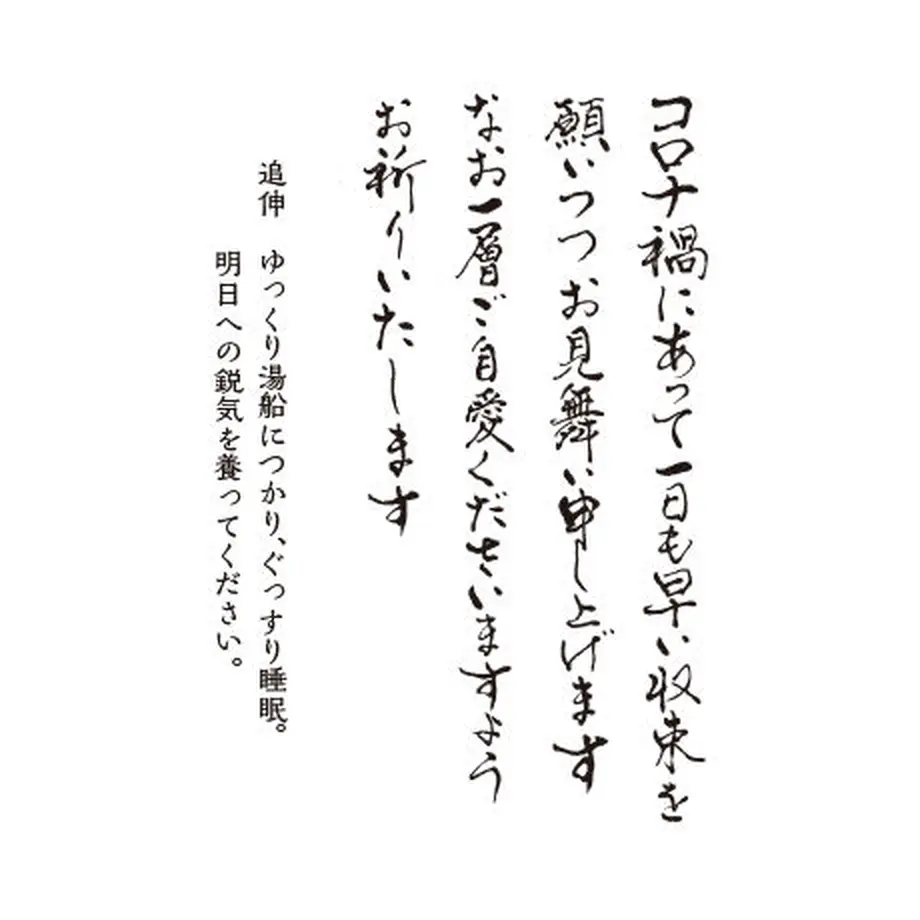 コロナ禍にあって一日も早い収束を
願いつつお見舞い申し上げます
なお一層ご自愛くださいますよう
お祈りいたします
追伸　ゆっくり湯船につかり、ぐっすり睡眠。
明日への鋭気を養ってください。